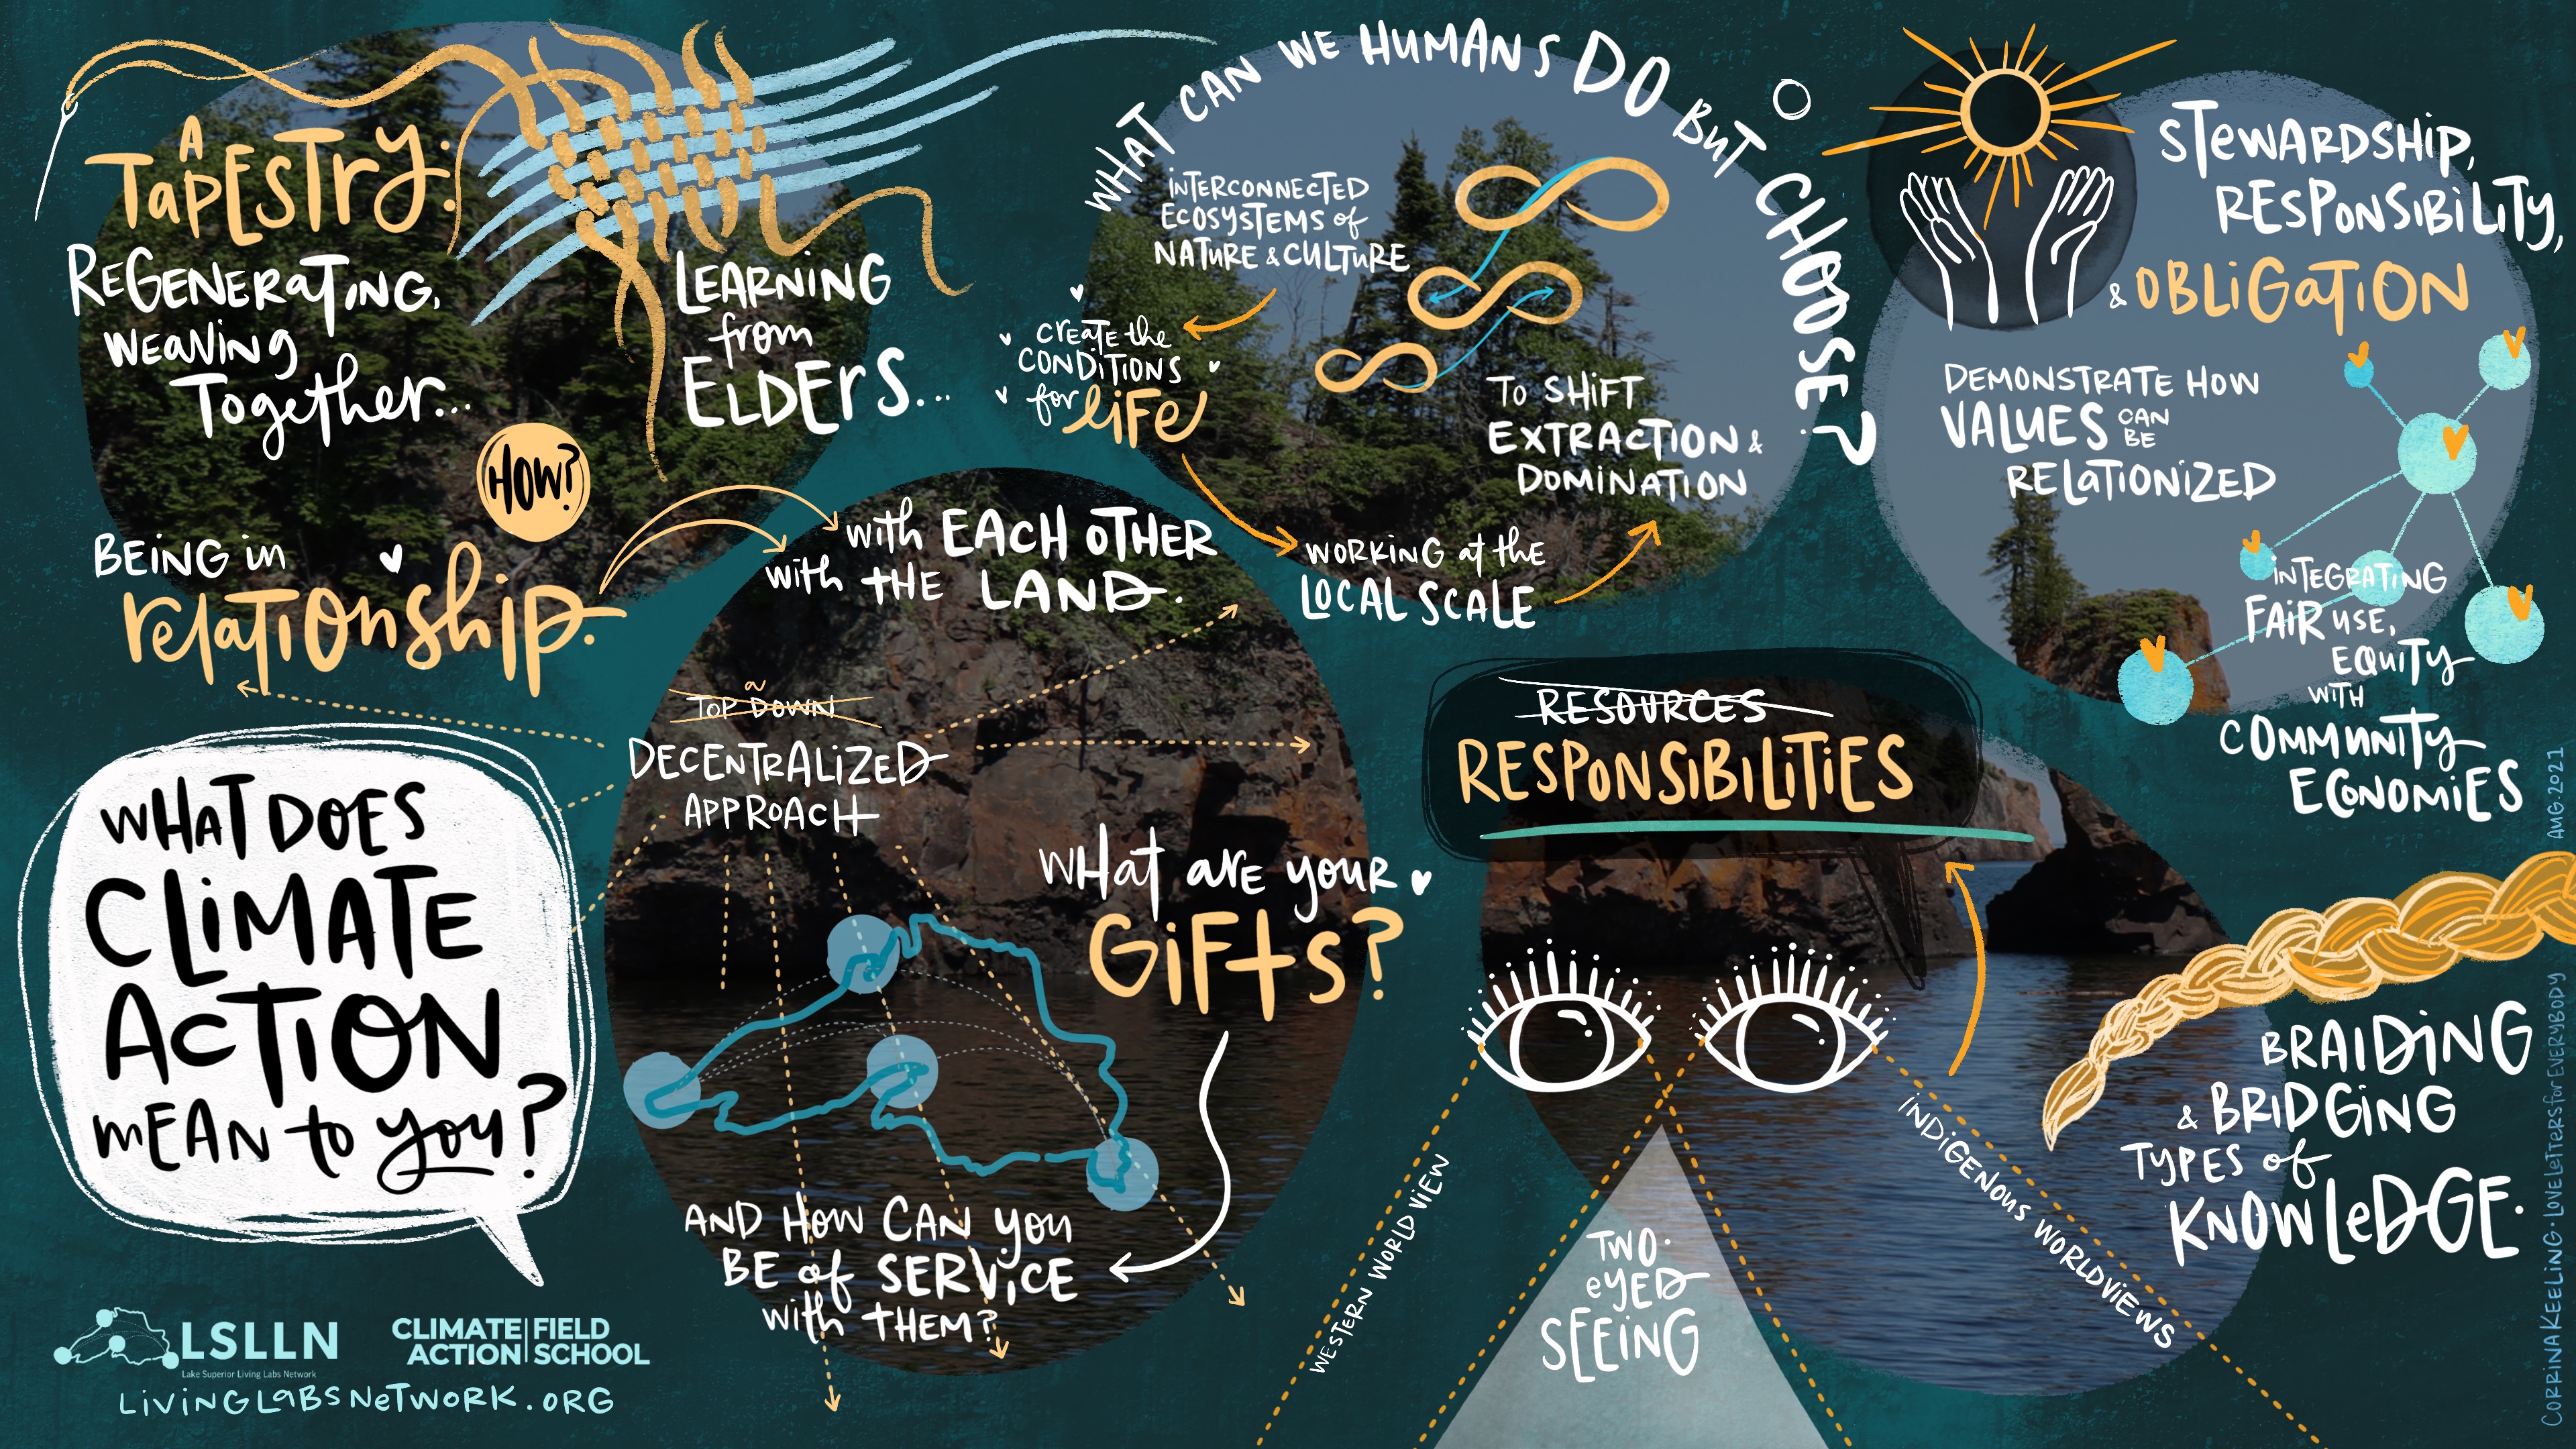 A
TAPESTRY:
REGENERATING,
WEAVING
TOGETHER...
LEARNING
from
ELDERS...
HOW?
BEING in
relationship.
with EACH OTHER
with THE LAND.
WHAT CAN WE HUMANS DO BUT CHOOSE?
INTERCONNECTED
ECOSYSTEMS of
NATURE & CULTURE
CREATE the
CONDITIONS
for LIFE
WORKING at the
LOCAL SCALE
TO SHIFT
EXTRACTION &
DOMINATION
STEWARDSHIP,
RESPONSIBILITY,
& OBLIGATION
DEMONSTRATE HOW
VALUES CAN
BE
RELATIONIZED
INTEGRATING
FAIR USE,
EQUITY
WITH
COMMUNITY
ECONOMIES
WHAT DOES
CLIMATE
ACTION
MEAN to you?
a
TOP DOWN
DECENTRALIZED
APPROACH
WHAT ARE YOUR
GIFTS?
AND HOW CAN YOU
BE of SERVICE
with THEM?
RESOURCES
RESPONSIBILITIES
WESTERN WORLD VIEW
TWO·
EYED
SEEING
INDIGENOUS WORLDVIEWS
BRAIDING
& BRIDGING
TYPES of
KNOWLEDGE.
LSLLN
Lake Superior Living Labs Network
CLIMATE FIELD
ACTION SCHOOL
LIVINGLABSNETWORK.ORG
CORRINA KEELING · LOVELETTERS for EVERYBODY · AUG 2021